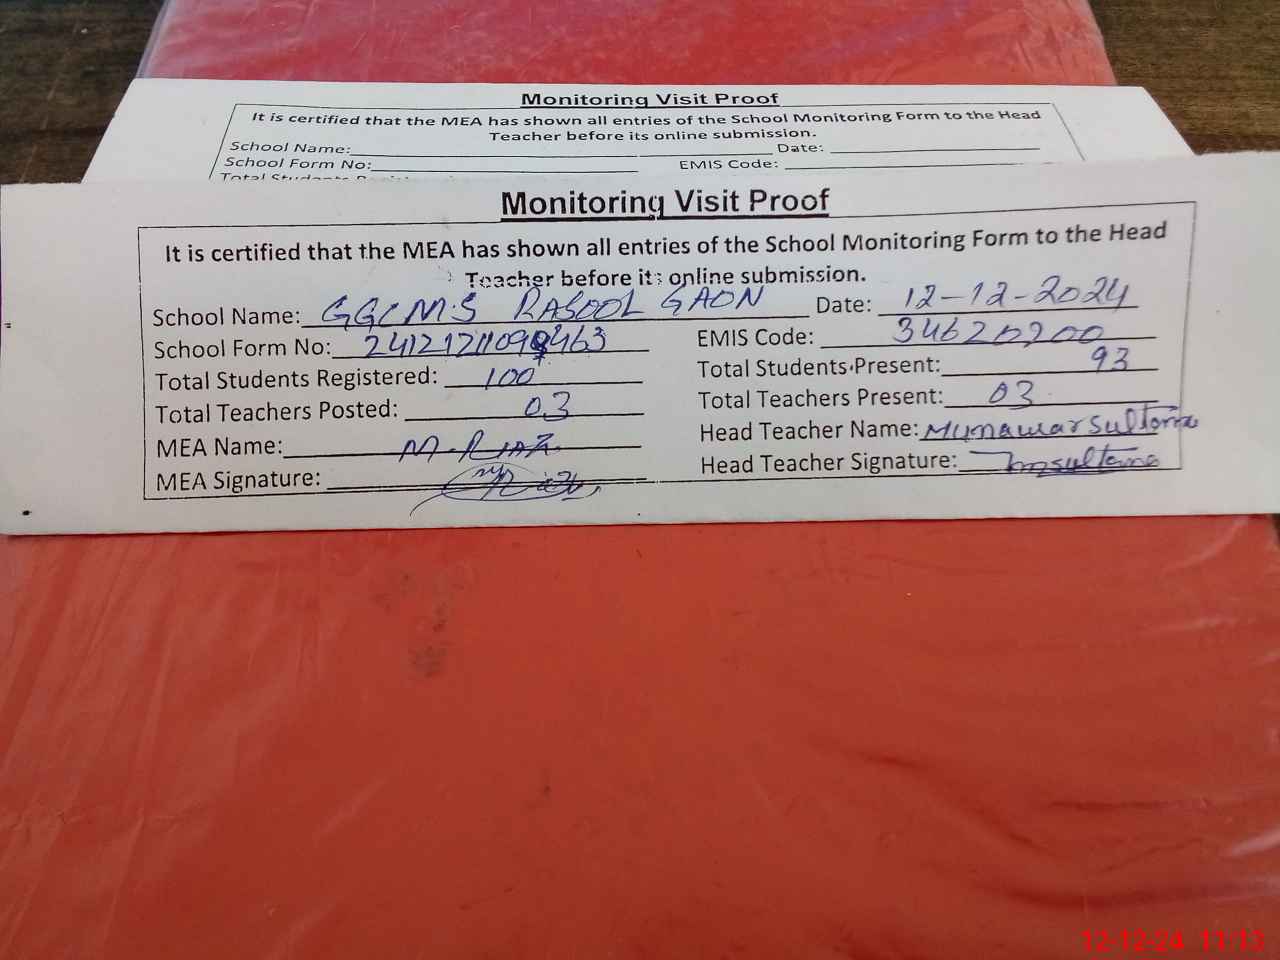 Monitoring Visit Proof
It is certified that the MEA has shown all entries of the School Monitoring Form to the Head
Teacher before its online submission.
School Name: Date:
School Form No: EMIS Code:
Monitoring Visit Proof
It is certified that the MEA has shown all entries of the School Monitoring Form to the Head
Teacher before its online submission.
School Name: GGCM.S RASOOL GAON Date: 12-12-2024
School Form No: EMIS Code: 34620200
Total Students Registered: 100 Total Students Present: 93
Total Teachers Posted: 03 Total Teachers Present: 03
MEA Name: M. RIAZ Head Teacher Name: Munawar Sultana
MEA Signature: Head Teacher Signature: Msultana
12-12-24 11:13